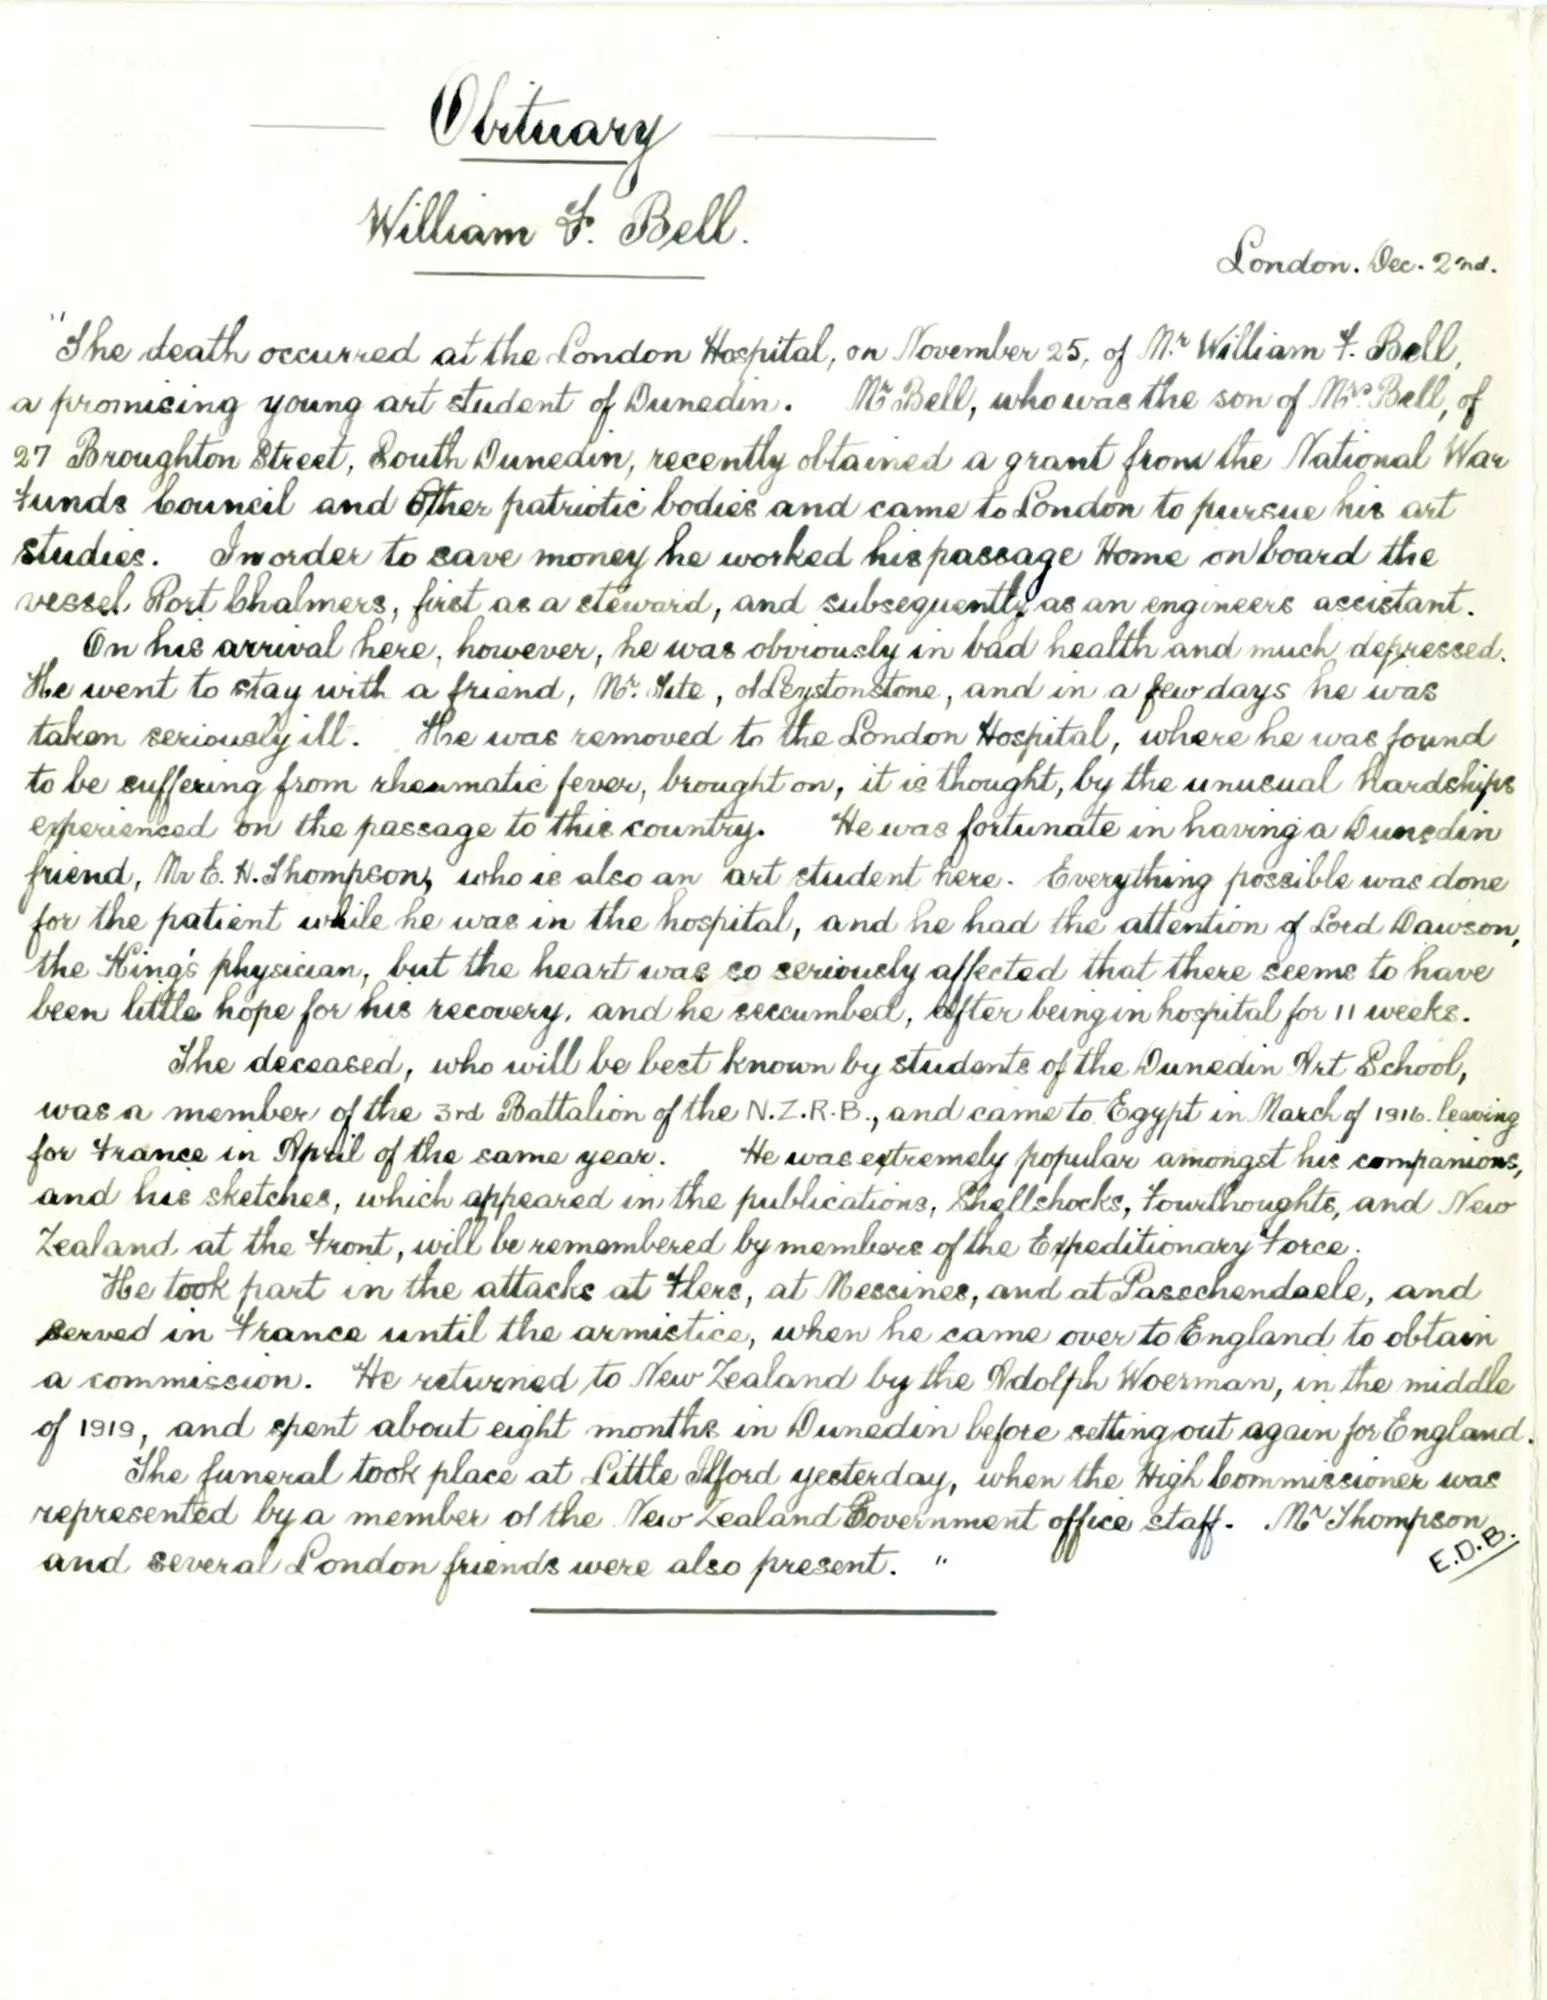 Obituary
William F. Bell.
London. Dec. 2nd.
"The death occurred at the London Hospital, on November 25, of Mr William F. Bell,
a promising young art student of Dunedin. Mr Bell, who was the son of Mrs Bell, of
27 Broughton Street, South Dunedin, recently obtained a grant from the National War
Funds Council and Other patriotic bodies and came to London to pursue his art
studies. In order to save money he worked his passage Home on board the
vessel Port Chalmers, first as a steward, and subsequently as an engineers assistant.
On his arrival here, however, he was obviously in bad health and much depressed.
He went to stay with a friend, Mr. Tite, of Leystonstone, and in a few days he was
taken seriously ill. He was removed to the London Hospital, where he was found
to be suffering from rheumatic fever, brought on, it is thought, by the unusual hardships
experienced on the passage to this country. He was fortunate in having a Dunedin
friend, Mr E. H. Thompson, who is also an art student here. Everything possible was done
for the patient while he was in the hospital, and he had the attention of Lord Dawson,
the King's physician, but the heart was so seriously affected that there seems to have
been little hope for his recovery, and he seccumbed, after being in hospital for 11 weeks.
The deceased, who will be best known by students of the Dunedin Art School,
was a member of the 3rd Battalion of the N.Z.R.B., and came to Egypt in March of 1916. leaving
for France in April of the same year. He was extremely popular amongst his companions,
and his sketches, which appeared in the publications, Shellshocks, Fourthoughts, and New
Zealand at the Front, will be remembered by members of the Expeditionary Force.
He took part in the attacks at Flers, at Messines, and at Passchendaele, and
served in France until the armistice, when he came over to England to obtain
a commission. He returned to New Zealand by the Adolph Woerman, in the middle
of 1919, and spent about eight months in Dunedin before setting out again for England.
The funeral took place at Little Ilford yesterday, when the High Commissioner was
represented by a member of the New Zealand Government office staff. Mr Thompson
and several London friends were also present. "
E.D.B.